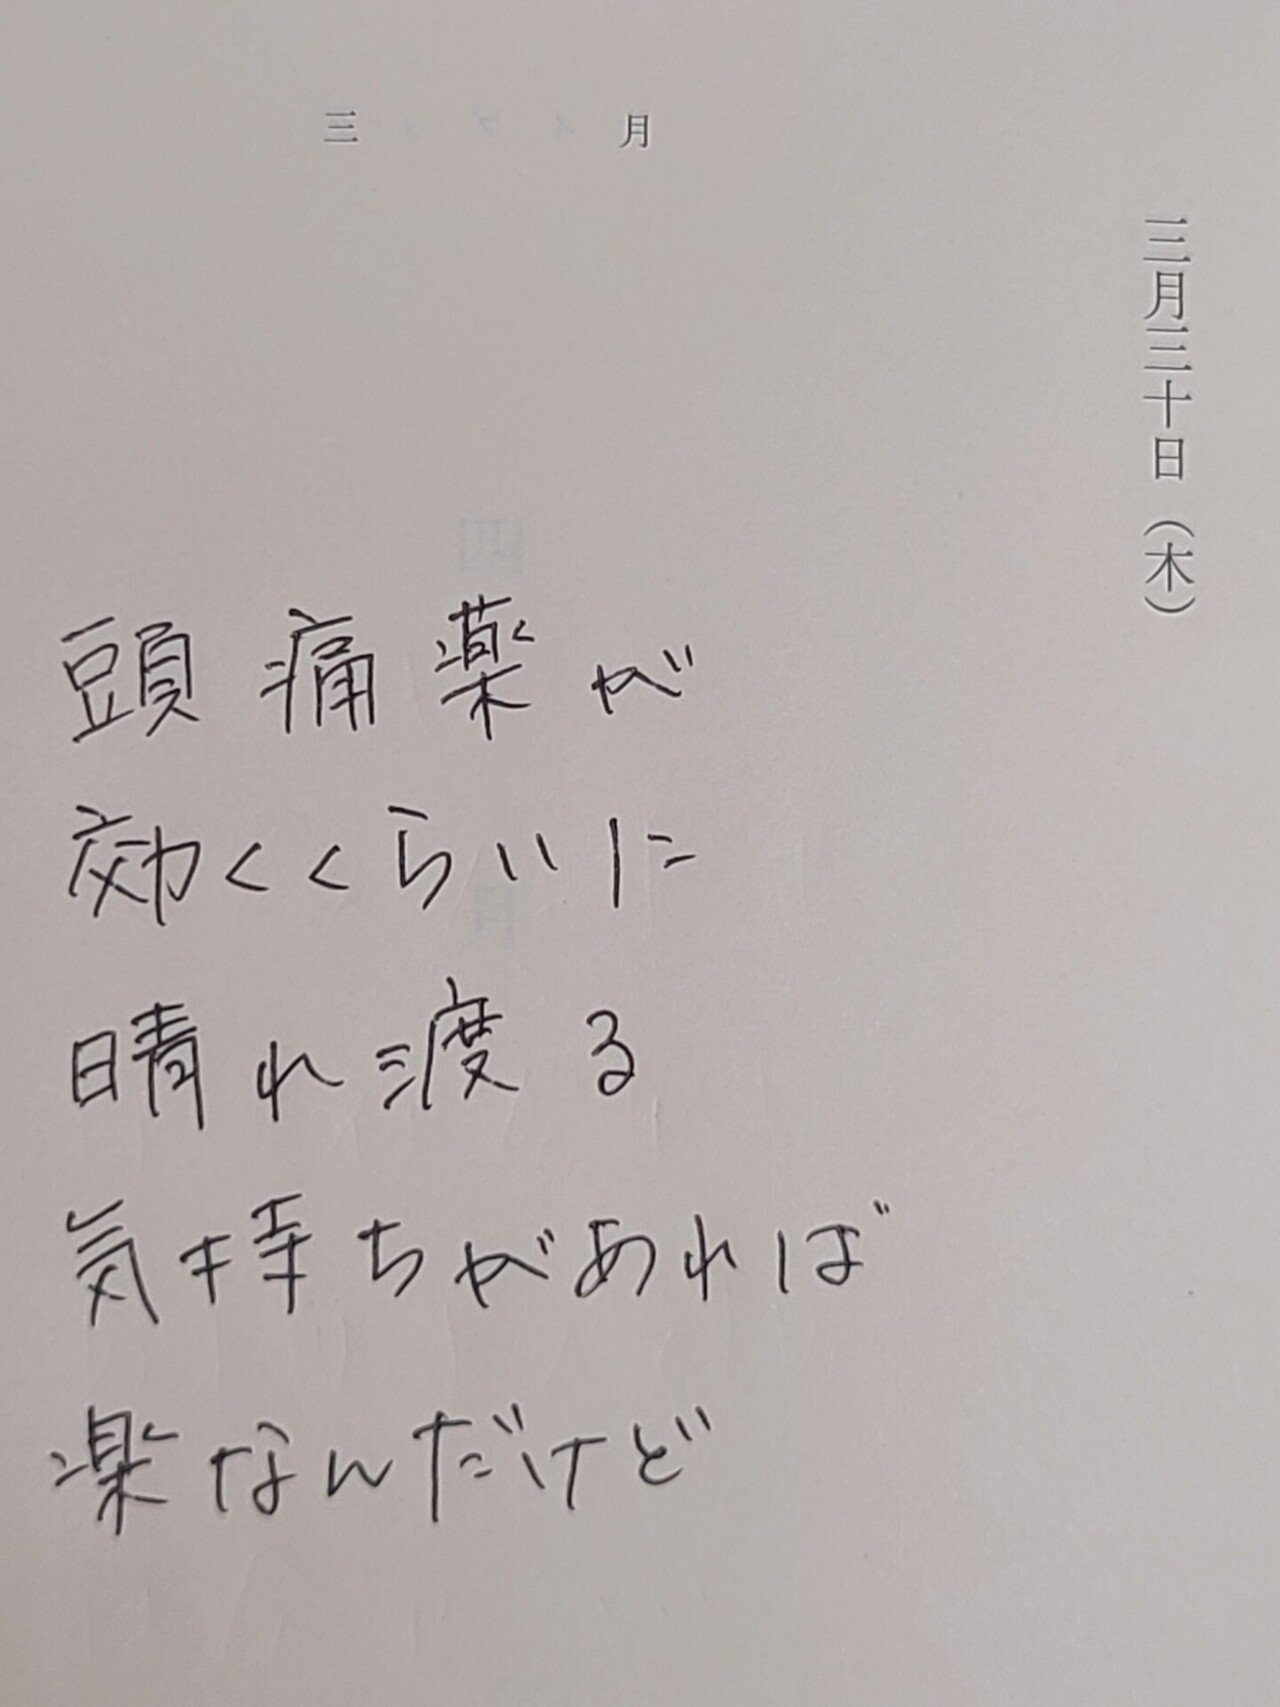 三月
三月三十日（木）
頭痛薬が
効くくらいに
晴れ渡る
気持ちがあれば
楽なんだけど